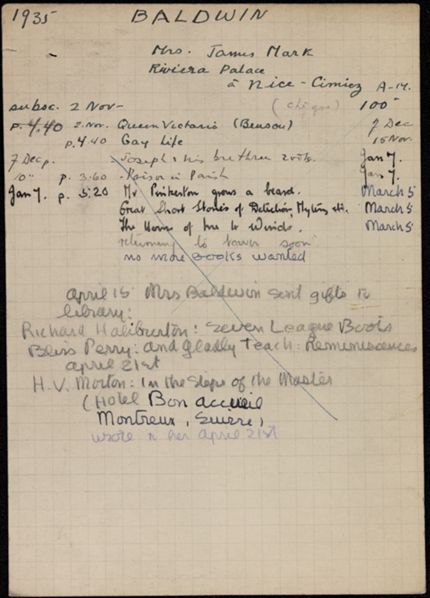 1935 BALDWIN
Mrs. James Mark
Riviera Palace
à Nice - Cimiez A-M.
subsc. 2 Nov- (chèque) 100
p. 4.40 2. Nov. Queen Victoria (Benson) 7 Dec
p 4.40 Gay Life 15 Nov.
7 Dec p. Joseph & his brethren 2 vols. Jan 7.
10" p. 3.60 Poison in Parish Jan 7.
Jan 7. p. 5.20 Mr Pinkerton grows a beard. March 5
Great Short Stories of Detection, Mystery etc. March 5
The House of four Winds. March 5
returning to town soon
no more books wanted
April 15 Mrs Baldwin sent gifts to
library:
Richard Haliburton: Seven League Boots
Bliss Perry: And Gladly Teach: Reminiscences
April 21st
H.V. Morton: In the Steps of the Master
(Hotel Bon accueil
Montreux, Suisse)
wrote to her April 21st